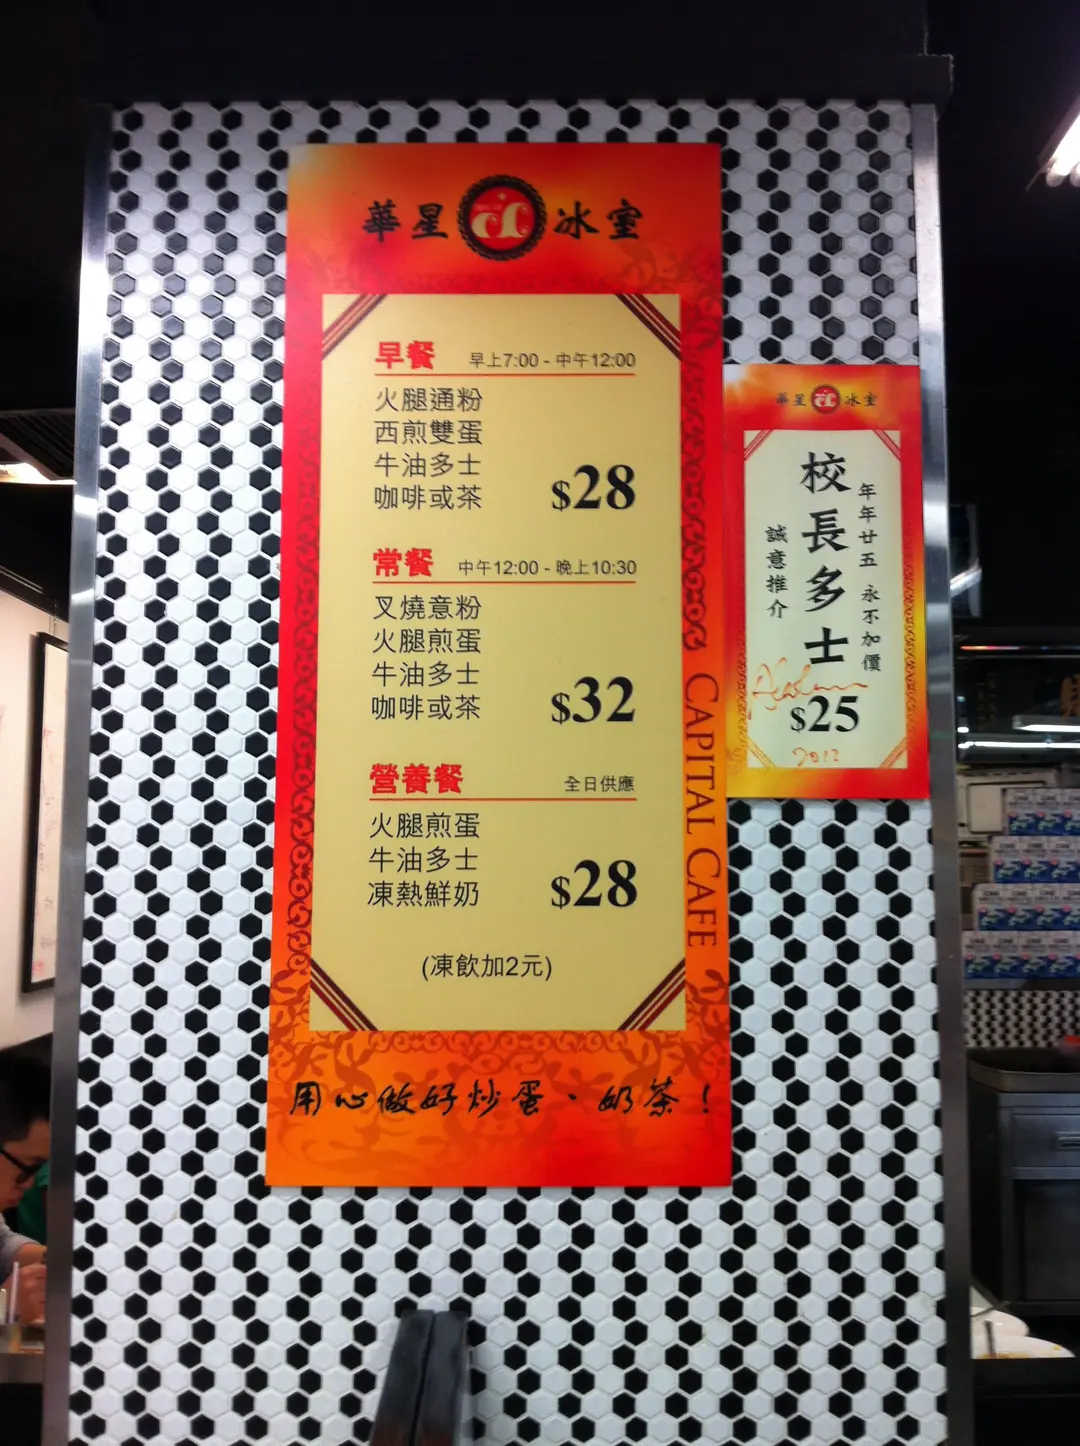 華星冰室
早餐 早上7:00 - 中午12:00
火腿通粉
西煎雙蛋
牛油多士
咖啡或茶
$28
常餐 中午12:00 - 晚上10:30
叉燒意粉
火腿煎蛋
牛油多士
咖啡或茶
$32
營養餐 全日供應
火腿煎蛋
牛油多士
凍熱鮮奶
$28
(凍飲加2元)
用心做好炒蛋、奶茶！
CAPITAL CAFE
華星冰室
年年廿五 永不加價
校長多士
誠意推介
$25
2012